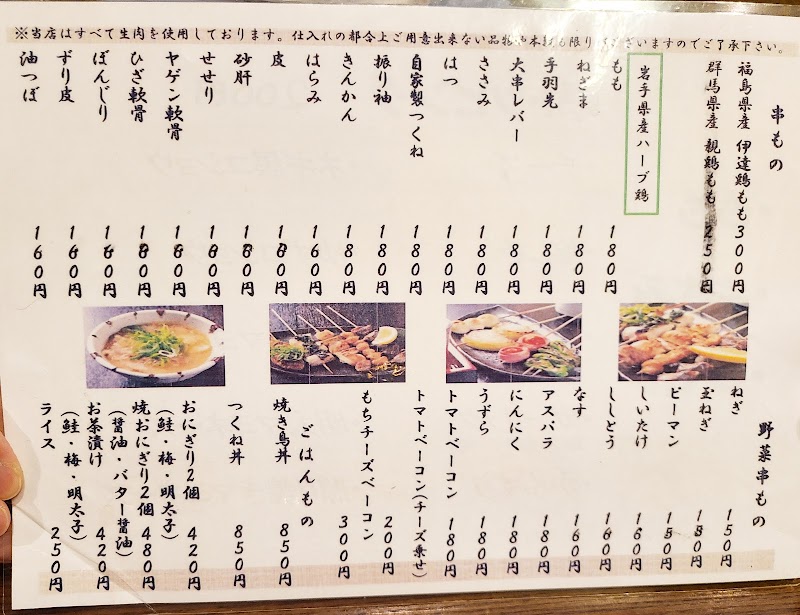 ※当店はすべて生肉を使用しております。仕入れの都合上ご用意出来ない品物や本数も限りがございますのでご了承下さい。
串もの
福島県産 伊達鶏もも 300円
群馬県産 親鶏もも 250円
岩手県産ハーブ鶏
もも 180円
ねぎま 180円
手羽先 180円
大串レバー 180円
ささみ 180円
はつ 180円
自家製つくね 180円
振り袖 180円
きんかん 180円
はらみ 160円
皮 180円
砂肝 180円
せせり 180円
ヤゲン軟骨 180円
ひざ軟骨 180円
ぼんじり 160円
ずり皮 160円
油つぼ 160円
野菜串もの
ねぎ 150円
玉ねぎ 150円
ピーマン 150円
しいたけ 160円
ししとう 160円
なす 160円
アスパラ 180円
にんにく 180円
うずら 180円
トマトベーコン 180円
トマトベーコン(チーズ乗せ) 200円
もちチーズベーコン 300円
ごはんもの
焼き鳥丼 850円
つくね丼 850円
おにぎり2個 420円
(鮭・梅・明太子)
焼おにぎり2個 480円
(醤油・バター醤油)
お茶漬け 420円
(鮭・梅・明太子)
ライス 250円